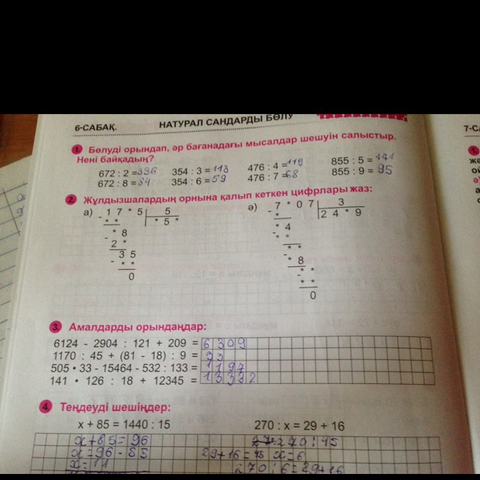 6-САБАҚ.
НАТУРАЛ САНДАРДЫ БӨЛУ
7-СА
1 Бөлуді орындап, әр бағанадағы мысалдар шешуін салыстыр.
Нені байқадың?
672 : 2 = 336 354 : 3 = 118 476 : 4 = 119 855 : 5 = 171
672 : 8 = 84 354 : 6 = 59 476 : 7 = 68 855 : 9 = 95
2 Жұлдызшалардың орнына қалып кеткен цифрлары жаз:
а) - 1 7 * 5 | 5 ә) - 7 * 0 7 | 3
* * | * 5 * * | 2 4 * 9
- * 8 - * 4
2 * * *
- 3 5 - * 8
* * * *
0 - * *
* *
0
3 Амалдарды орындаңдар:
6124 - 2904 : 121 + 209 = 6309
1170 : 45 + (81 - 18) : 9 = 33
505 • 33 - 15464 - 532 : 133 = 1197
141 • 126 : 18 + 12345 = 13332
4 Теңдеуді шешіңдер:
x + 85 = 1440 : 15 270 : x = 29 + 16
x+85=96 270:45
x=96-85 29+16=45 x=6
x=11 270:6=29+16